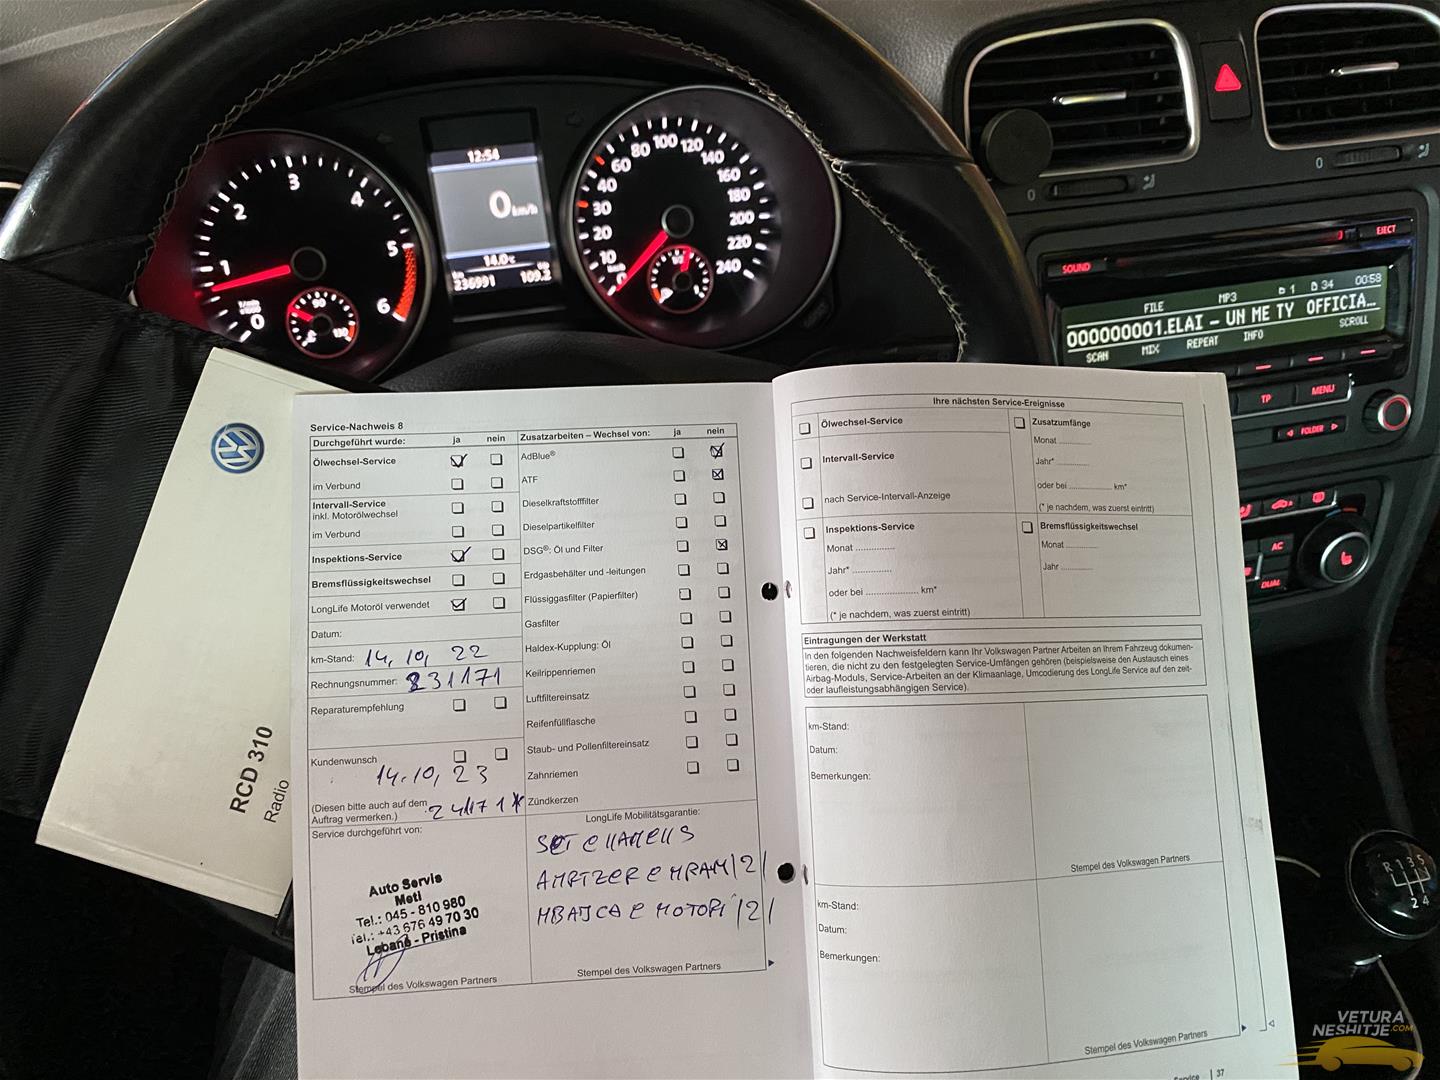 12:54
0 km/h
14.0°C
236991 109.2
1 2 3 4 5 6
0
1/min
x1000
90
130
0 10 20 30 40 60 80 100 120 140 160 180 200 220 240
km/h
1/2
SOUND
EJECT
FILE MP3 1 34 00:58
000000001.ELAI – UN ME TY OFFICIA...
SCAN MIX REPEAT INFO SCROLL
TP MENU
FOLDER
AC
DUAL
R 1 3 5
2 4
RCD 310
Radio
Service-Nachweis 8
Durchgeführt wurde: ja nein
Ölwechsel-Service
im Verbund
Intervall-Service
inkl. Motorölwechsel
im Verbund
Inspektions-Service
Bremsflüssigkeitswechsel
LongLife Motoröl verwendet
Datum:
km-Stand: 14, 10, 22
Rechnungsnummer: 231171
Reparaturempfehlung
Kundenwunsch
14.10, 23
(Diesen bitte auch auf dem
Auftrag vermerken.)
Service durchgeführt von:
Auto Servis
Meti
Tel.: 045 - 810 980
Tel.: +43 676 49 70 30
Lebanë - Pristina
Stempel des Volkswagen Partners
Zusatzarbeiten – Wechsel von: ja nein
AdBlue®
ATF
Dieselkraftstofffilter
Dieselpartikelfilter
DSG®: Öl und Filter
Erdgasbehälter und -leitungen
Flüssiggasfilter (Papierfilter)
Gasfilter
Haldex-Kupplung: Öl
Keilrippenriemen
Luftfiltereinsatz
Reifenfüllflasche
Staub- und Pollenfiltereinsatz
Zahnriemen
Zündkerzen
LongLife Mobilitätsgarantie:
AMRTZER E MRAM/2/
MBAJCA E MOTORI /2/
Stempel des Volkswagen Partners
Ihre nächsten Service-Ereignisse
Ölwechsel-Service
Intervall-Service
nach Service-Intervall-Anzeige
Inspektions-Service
Monat ..............
Jahr* ..............
oder bei .................... km*
(* je nachdem, was zuerst eintritt)
Zusatzumfänge
Monat ............
Jahr* ............
oder bei ................ km*
(* je nachdem, was zuerst eintritt)
Bremsflüssigkeitswechsel
Monat ............
Jahr ............
Eintragungen der Werkstatt
In den folgenden Nachweisfeldern kann Ihr Volkswagen Partner Arbeiten an Ihrem Fahrzeug dokumen-
tieren, die nicht zu den festgelegten Service-Umfängen gehören (beispielsweise den Austausch eines
Airbag-Moduls, Service-Arbeiten an der Klimaanlage, Umcodierung des LongLife Service auf den zeit-
oder laufleistungsabhängigen Service).
km-Stand:
Datum:
Bemerkungen:
Stempel des Volkswagen Partners
km-Stand:
Datum:
Bemerkungen:
Stempel des Volkswagen Partners
37
VETURA
NESHITJE.COM